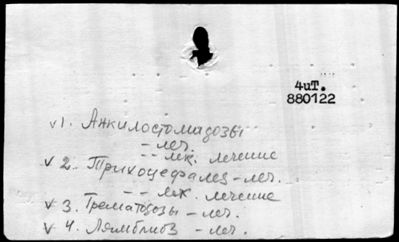 4иТ.
880122
v 1. Анкилостомидозы
- леч.
- - лек. лечение
v 2. Трихоцефалез - леч.
- - лек. лечение
v 3. Трематодозы - леч.
v 4. Лямблиоз - леч.